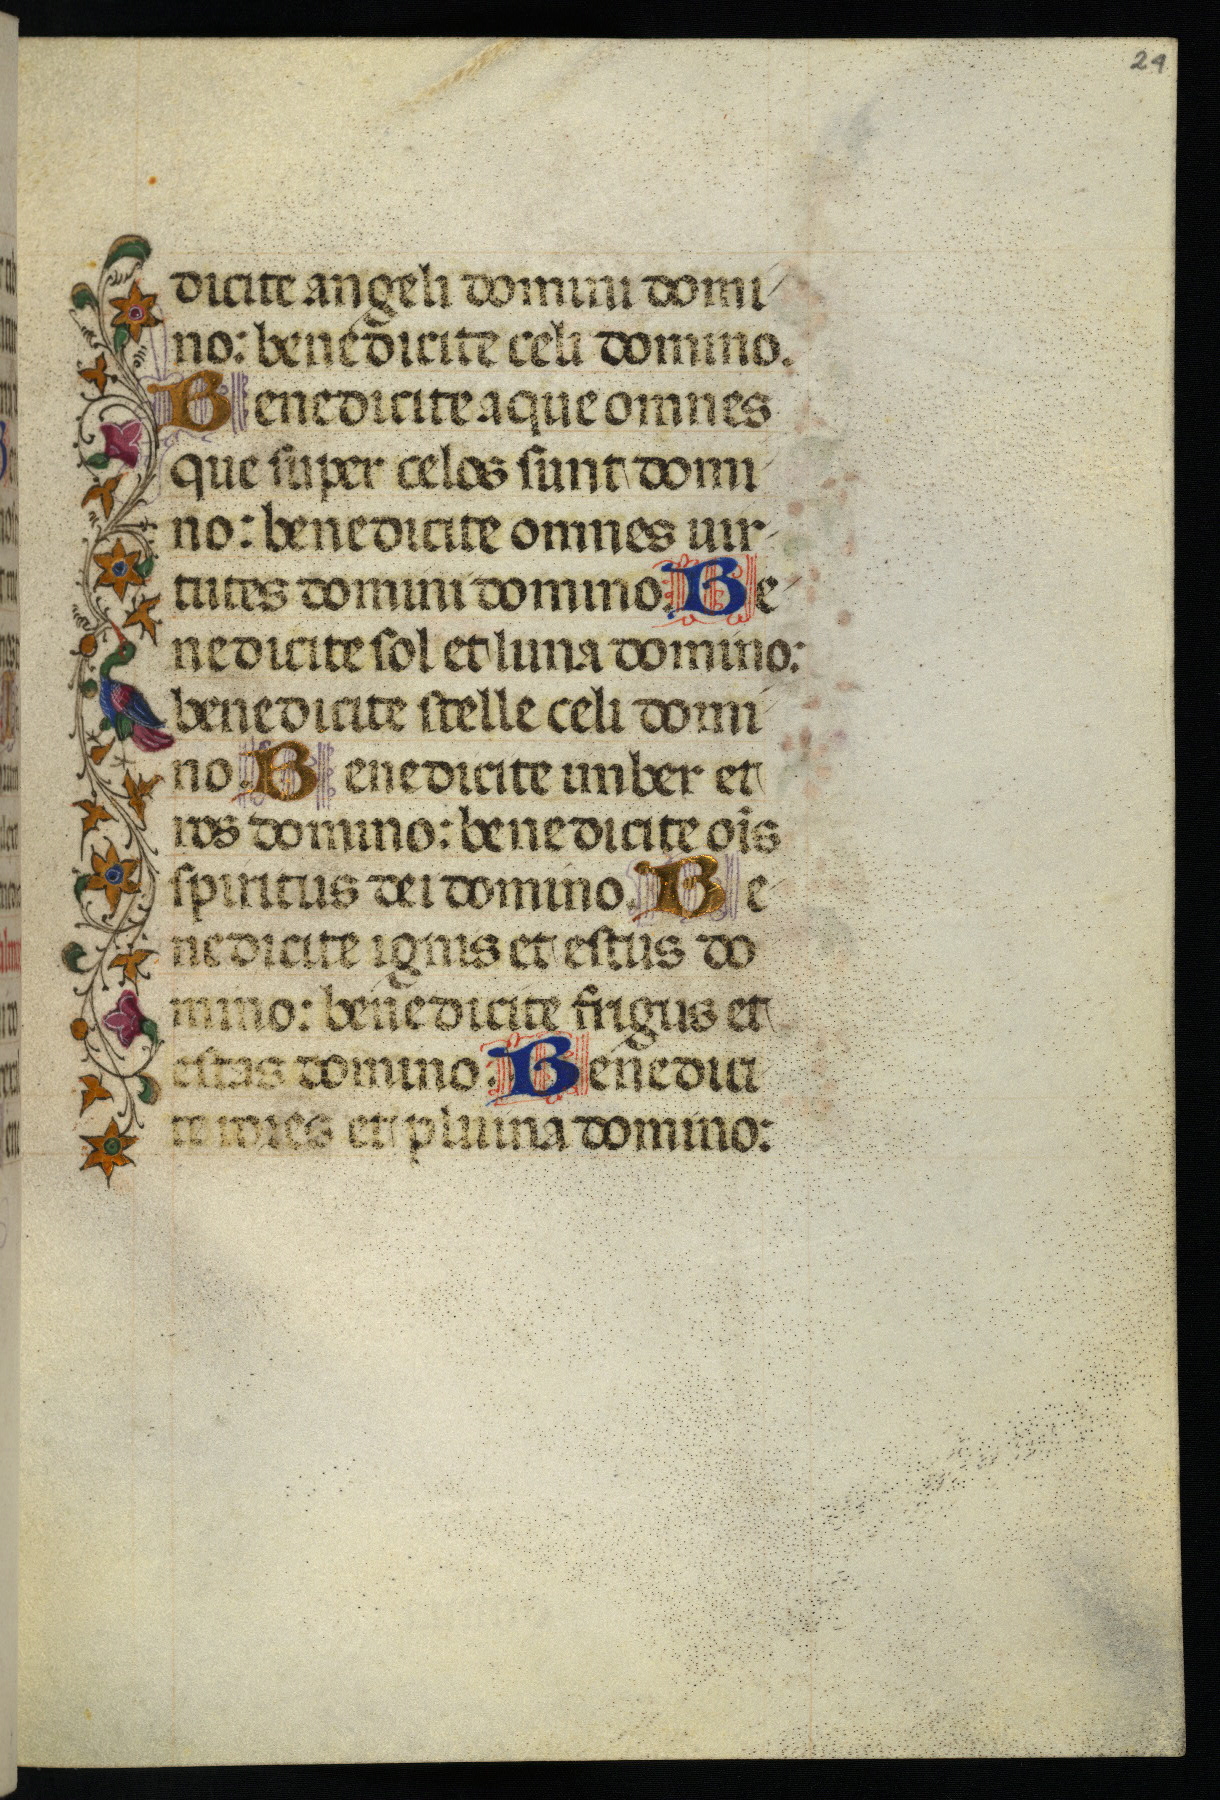 24
dicite angeli domini domi
no: benedicite celi domino.
Benedicite aque omnes
que super celos sunt domi
no: benedicite omnes uir
tutes domini domino. Be
nedicite sol et luna domino:
benedicite stelle celi domi
no. Benedicite imber et
ros domino: benedicite oīs
spiritus dei domino. Be
nedicite ignis et estus do
mino: benedicite frigus et
estas domino. Benedici
te rores et pluuina domino: